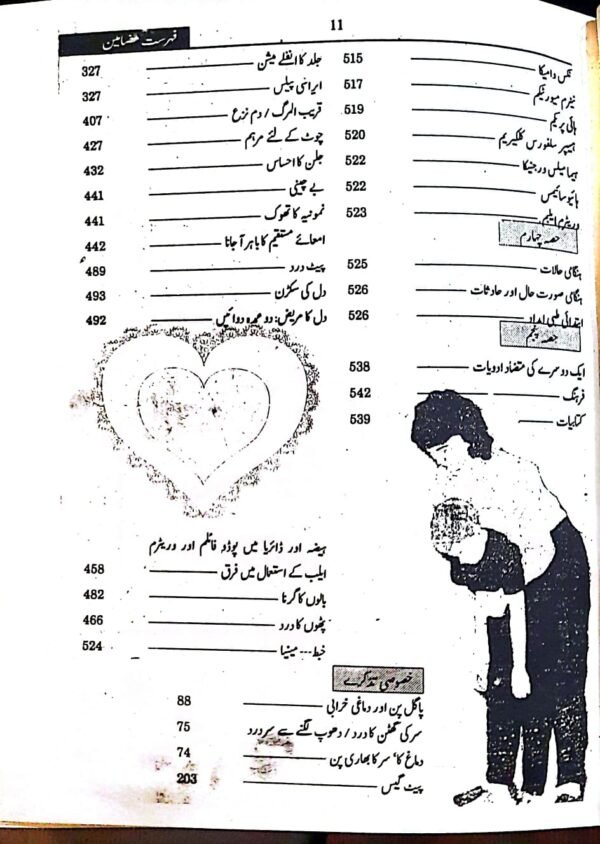 11
فہرست مضامین
نکس وامیکا 515
نیٹرم میورٹیکم 517
ہائی پریکم 519
ہیپر سلفورس کلکیریم 520
ہیما میلس ورجنیکا 522
ہائیوسائیمس 522
وریٹرم ایلبم 523
حصہ چہارم
ہنگامی حالات 525
ہنگامی صورت حال اور حادثات 526
ابتدائی طبی امداد 526
حصہ پنجم
ایک دوسرے کی متضاد ادویات 538
فرہنگ 542
کتابیات 539
جلد کا انفلے میشن 327
ایرانی پیلس 327
قریب المرگ / دم نزع 407
چوٹ کے لئے مرہم 427
جلن کا احساس 432
بے چینی 441
نمونیہ کا تھوک 441
امعائے مستقیم کا باہر آ جانا 442
پیٹ درد 489
دل کی سکڑن 493
دل کا مریض: دو عمدہ دوائیں 492
ہیضہ اور ڈائریا میں پوڈو فائلم اور وریٹرم
ایلب کے استعمال میں فرق 458
بالوں کا گرنا 482
پٹھوں کا درد 466
خبط --- مینیا 524
خصوصی تذکرے
پاگل پن اور دماغی خرابی 88
سر کی گھٹن کا درد / دھوپ لگنے سے سر درد 75
دماغ کا، سر کا بھاری پن 74
پیٹ گیس 203